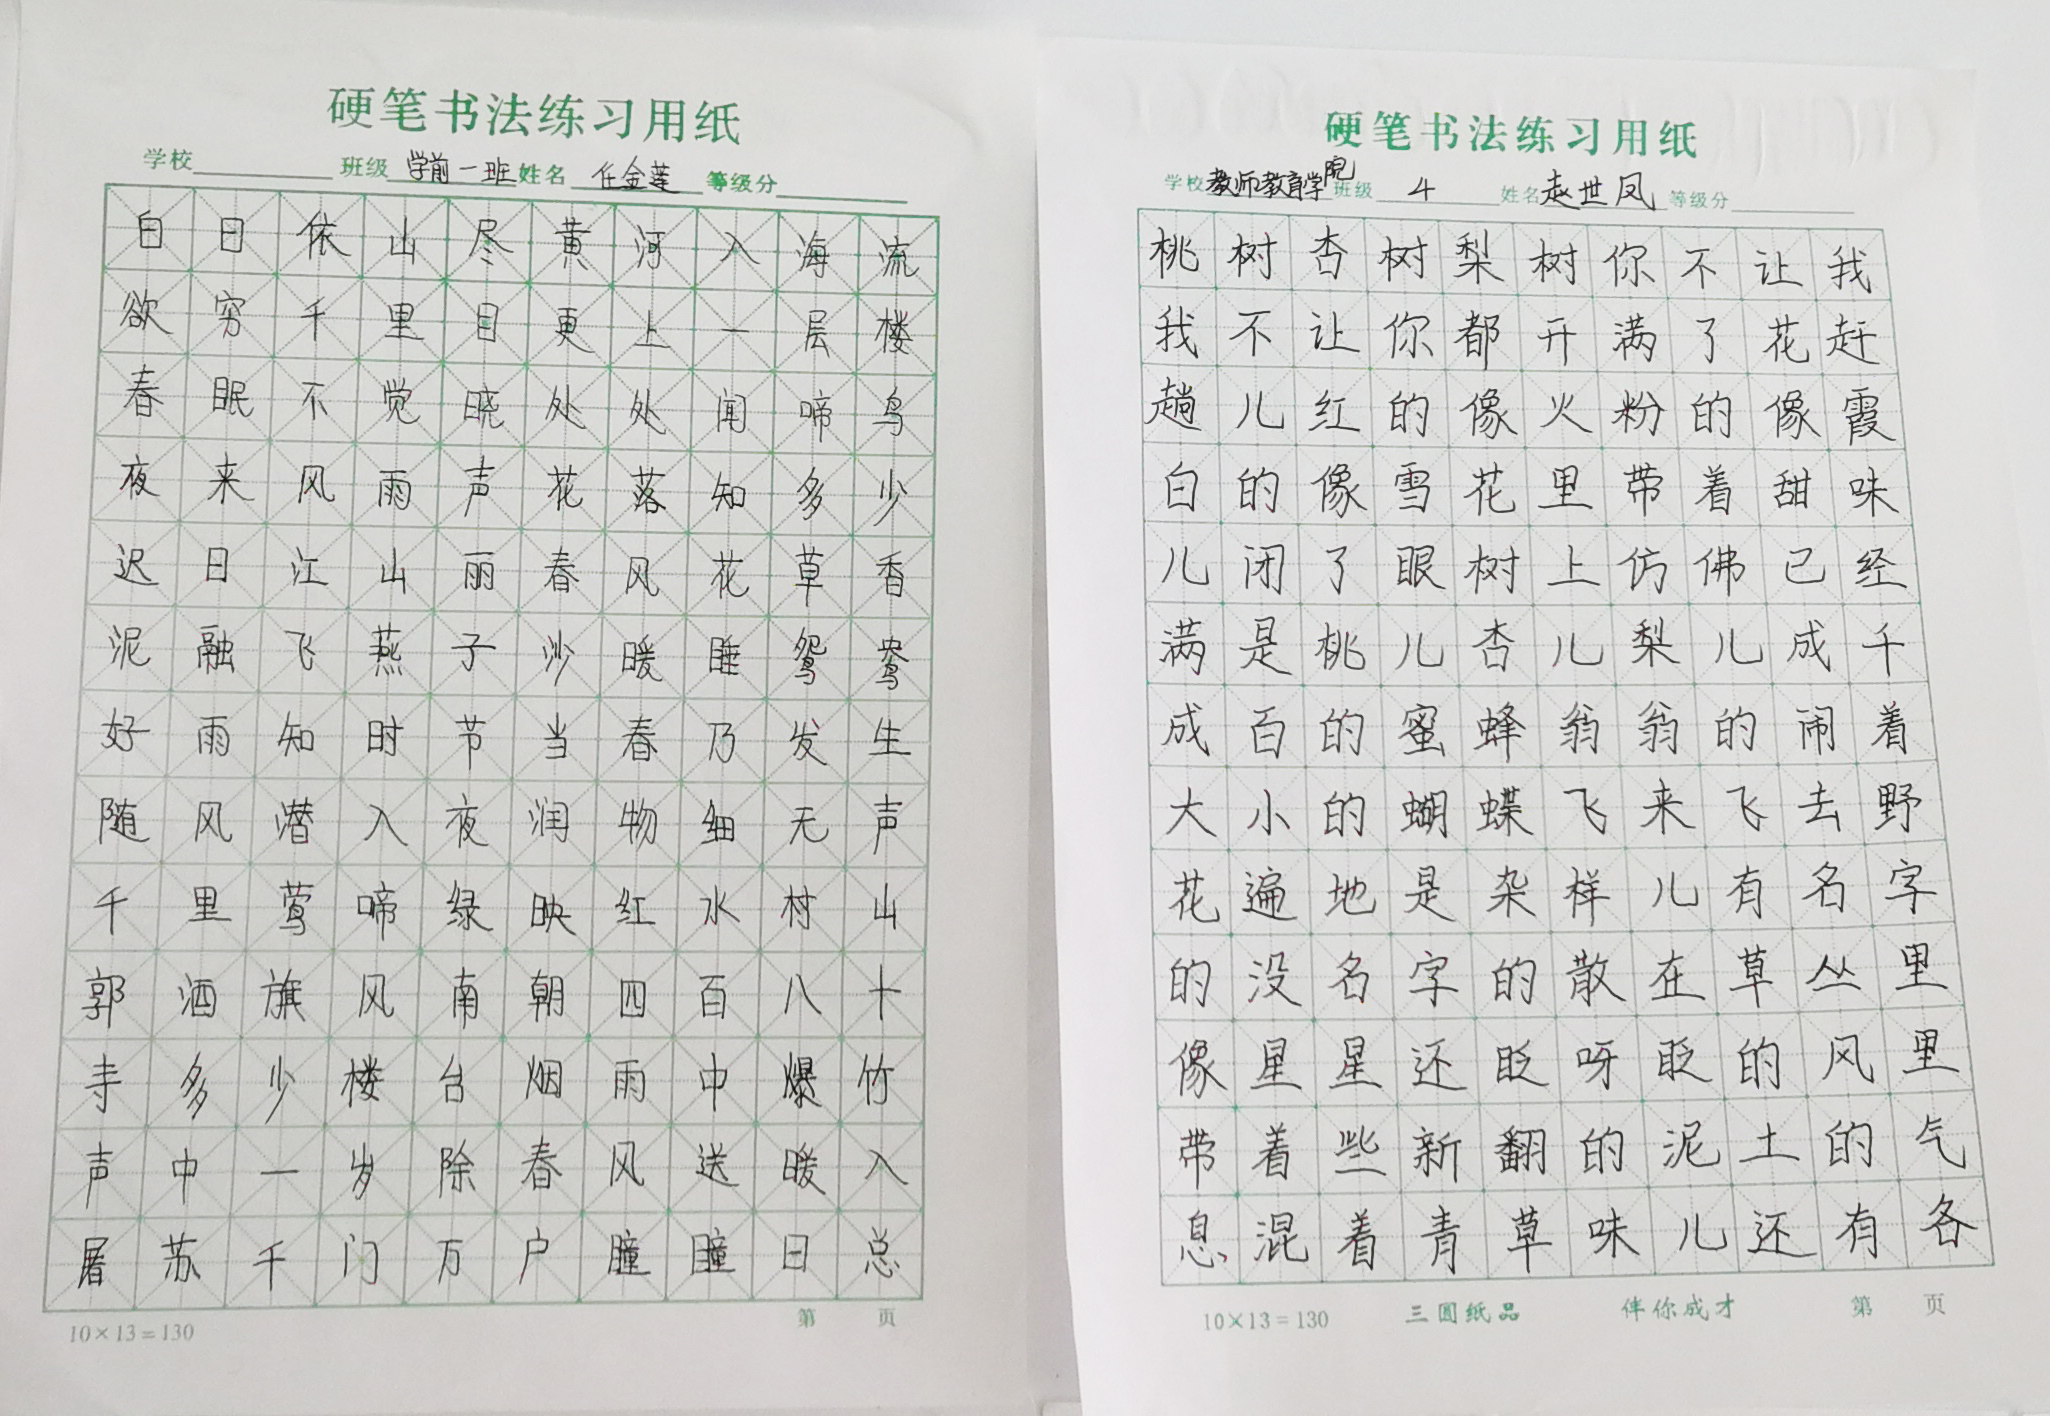 硬笔书法练习用纸
学校 班级 学前一班 姓名 任金莲 等级分
白日依山尽黄河入海流
欲穷千里目更上一层楼
春眠不觉晓处处闻啼鸟
夜来风雨声花落知多少
迟日江山丽春风花草香
泥融飞燕子沙暖睡鸳鸯
好雨知时节当春乃发生
随风潜入夜润物细无声
千里莺啼绿映红水村山
郭酒旗风南朝四百八十
寺多少楼台烟雨中爆竹
声中一岁除春风送暖入
屠苏千门万户瞳瞳日总
10×13=130 第 页
硬笔书法练习用纸
学校 教师教育学院 班级 4 姓名 赵世凤 等级分
桃树杏树梨树你不让我
我不让你都开满了花赶
趟儿红的像火粉的像霞
白的像雪花里带着甜味
儿闭了眼树上仿佛已经
满是桃儿杏儿梨儿成千
成百的蜜蜂翁翁的闹着
大小的蝴蝶飞来飞去野
花遍地是杂样儿有名字
的没名字的散在草丛里
像星星还眨呀眨的风里
带着些新翻的泥土的气
息混着青草味儿还有各
10×13=130 三圆纸品 伴你成才 第 页